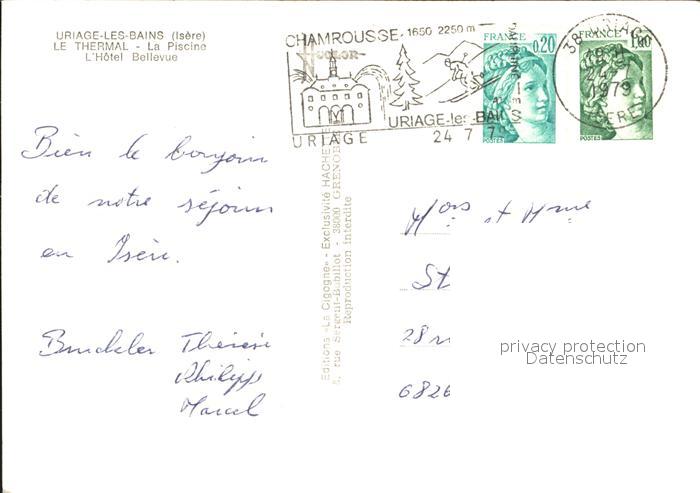 URIAGE-LES-BAINS (Isère)
LE THERMAL - La Piscine
L'Hôtel Bellevue
CHAMROUSSE - 1650 2250 m
COLOR
URIAGE
URIAGE-les-BAINS
24 7 79
DAUPHINE
FRANCE 0,20
POSTES
FRANCE 1,00
POSTES
38 URIAGE
24-7
1979
ISERE
Bien le bonjour
de notre séjour
en Isère.
Thérèse
Philippe
Marcel
Editions «La Cigogne» - Exclusivité HACHE
- 38000 GRENOB
Reproduction interdite
et Mme
St
28 r
6826
privacy protection
Datenschutz